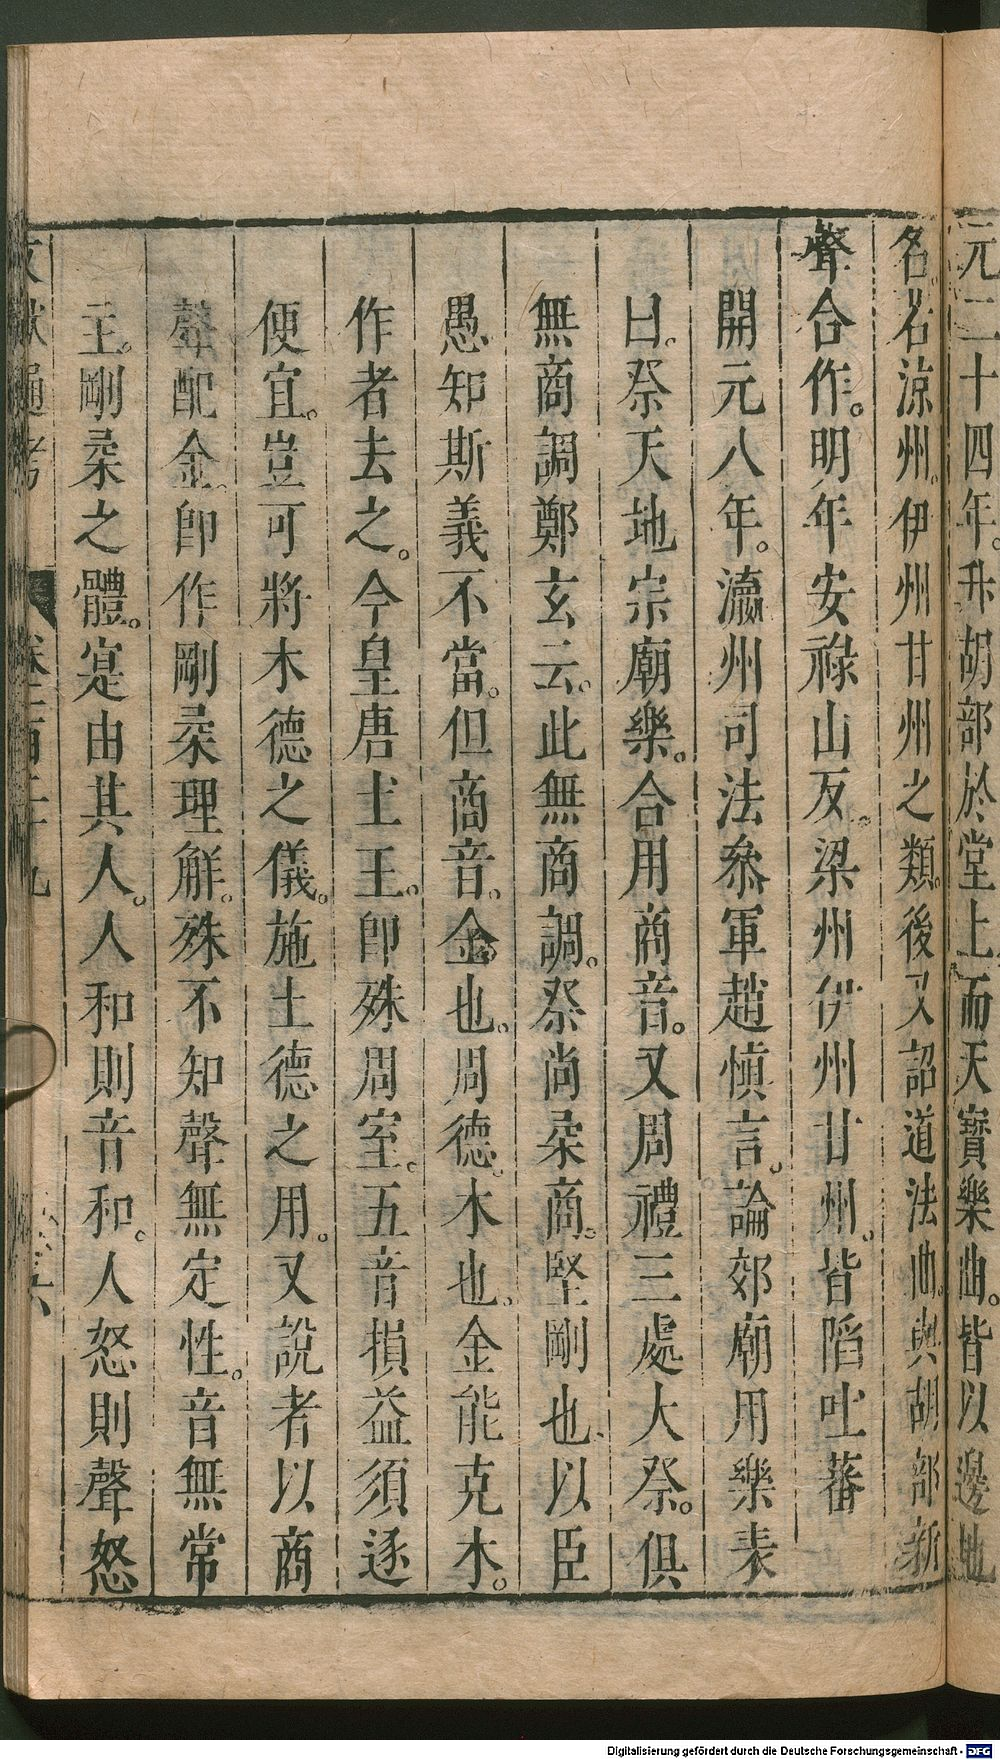 元二十四年。升胡部於堂上而天寶樂曲。皆以邊地
名。名涼州。伊州甘州之類。後又詔道法曲。與胡部新
聲合作。明年安祿山反。梁州伊州甘州。皆陷吐蕃
開元八年。瀛州司法叅軍趙慎言。論郊廟用樂表
曰。祭天地宗廟樂。合用商音。又周禮三處大祭。俱
無商調鄭玄云。此無商調。祭尚柔商。堅剛也、以臣
愚知斯義不當。但商音。金也。周德。木也。金能克木。
作者去之。今皇唐土王。即殊周室。五音損益須逐
便宜。豈可將木德之儀。施土德之用。又說者以商
聲配金。即作剛柔理解。殊不知聲無定性。音無常
主。剛柔之體。寔由其人。人和則音和。人怒則聲怒
文獻通考 卷一百二十九 六
Digitalisierung gefördert durch die Deutsche Forschungsgemeinschaft - DFG